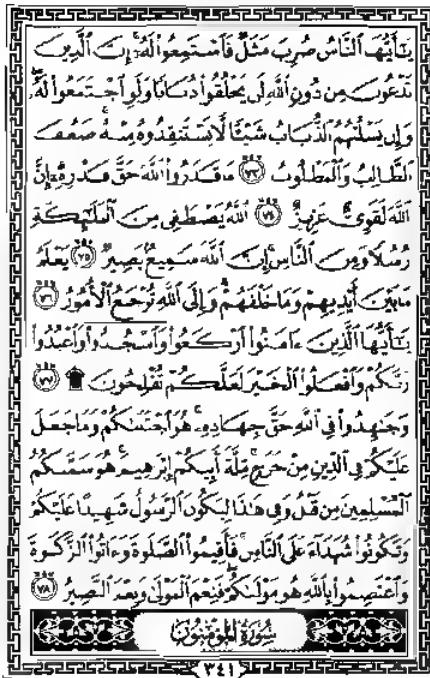 يَٰٓأَيُّهَا ٱلنَّاسُ ضُرِبَ مَثَلٌ فَٱسْتَمِعُوا۟ لَهُۥٓ إِنَّ ٱلَّذِينَ
تَدْعُونَ مِن دُونِ ٱللَّهِ لَن يَخْلُقُوا۟ ذُبَابًا وَلَوِ ٱجْتَمَعُوا۟ لَهُۥ
وَإِن يَسْلُبْهُمُ ٱلذُّبَابُ شَيْـًٔا لَّا يَسْتَنقِذُوهُ مِنْهُ ضَعُفَ
ٱلطَّالِبُ وَٱلْمَطْلُوبُ ٧٣ مَا قَدَرُوا۟ ٱللَّهَ حَقَّ قَدْرِهِۦٓ إِنَّ
ٱللَّهَ لَقَوِىٌّ عَزِيزٌ ٧٤ ٱللَّهُ يَصْطَفِى مِنَ ٱلْمَلَٰٓئِكَةِ
رُسُلًا وَمِنَ ٱلنَّاسِ إِنَّ ٱللَّهَ سَمِيعٌۢ بَصِيرٌ ٧٥ يَعْلَمُ
مَا بَيْنَ أَيْدِيهِمْ وَمَا خَلْفَهُمْ وَإِلَى ٱللَّهِ تُرْجَعُ ٱلْأُمُورُ ٧٦
يَٰٓأَيُّهَا ٱلَّذِينَ ءَامَنُوا۟ ٱرْكَعُوا۟ وَٱسْجُدُوا۟ وَٱعْبُدُوا۟
رَبَّكُمْ وَٱفْعَلُوا۟ ٱلْخَيْرَ لَعَلَّكُمْ تُفْلِحُونَ ۩ ٧٧
وَجَٰهِدُوا۟ فِى ٱللَّهِ حَقَّ جِهَادِهِۦ هُوَ ٱجْتَبَىٰكُمْ وَمَا جَعَلَ
عَلَيْكُمْ فِى ٱلدِّينِ مِنْ حَرَجٍ مِّلَّةَ أَبِيكُمْ إِبْرَٰهِيمَ هُوَ سَمَّىٰكُمُ
ٱلْمُسْلِمِينَ مِن قَبْلُ وَفِى هَٰذَا لِيَكُونَ ٱلرَّسُولُ شَهِيدًا عَلَيْكُمْ
وَتَكُونُوا۟ شُهَدَآءَ عَلَى ٱلنَّاسِ فَأَقِيمُوا۟ ٱلصَّلَوٰةَ وَءَاتُوا۟ ٱلزَّكَوٰةَ
وَٱعْتَصِمُوا۟ بِٱللَّهِ هُوَ مَوْلَىٰكُمْ فَنِعْمَ ٱلْمَوْلَىٰ وَنِعْمَ ٱلنَّصِيرُ ٧٨
سُورَةُ المُؤْمِنُونَ
٣٤١